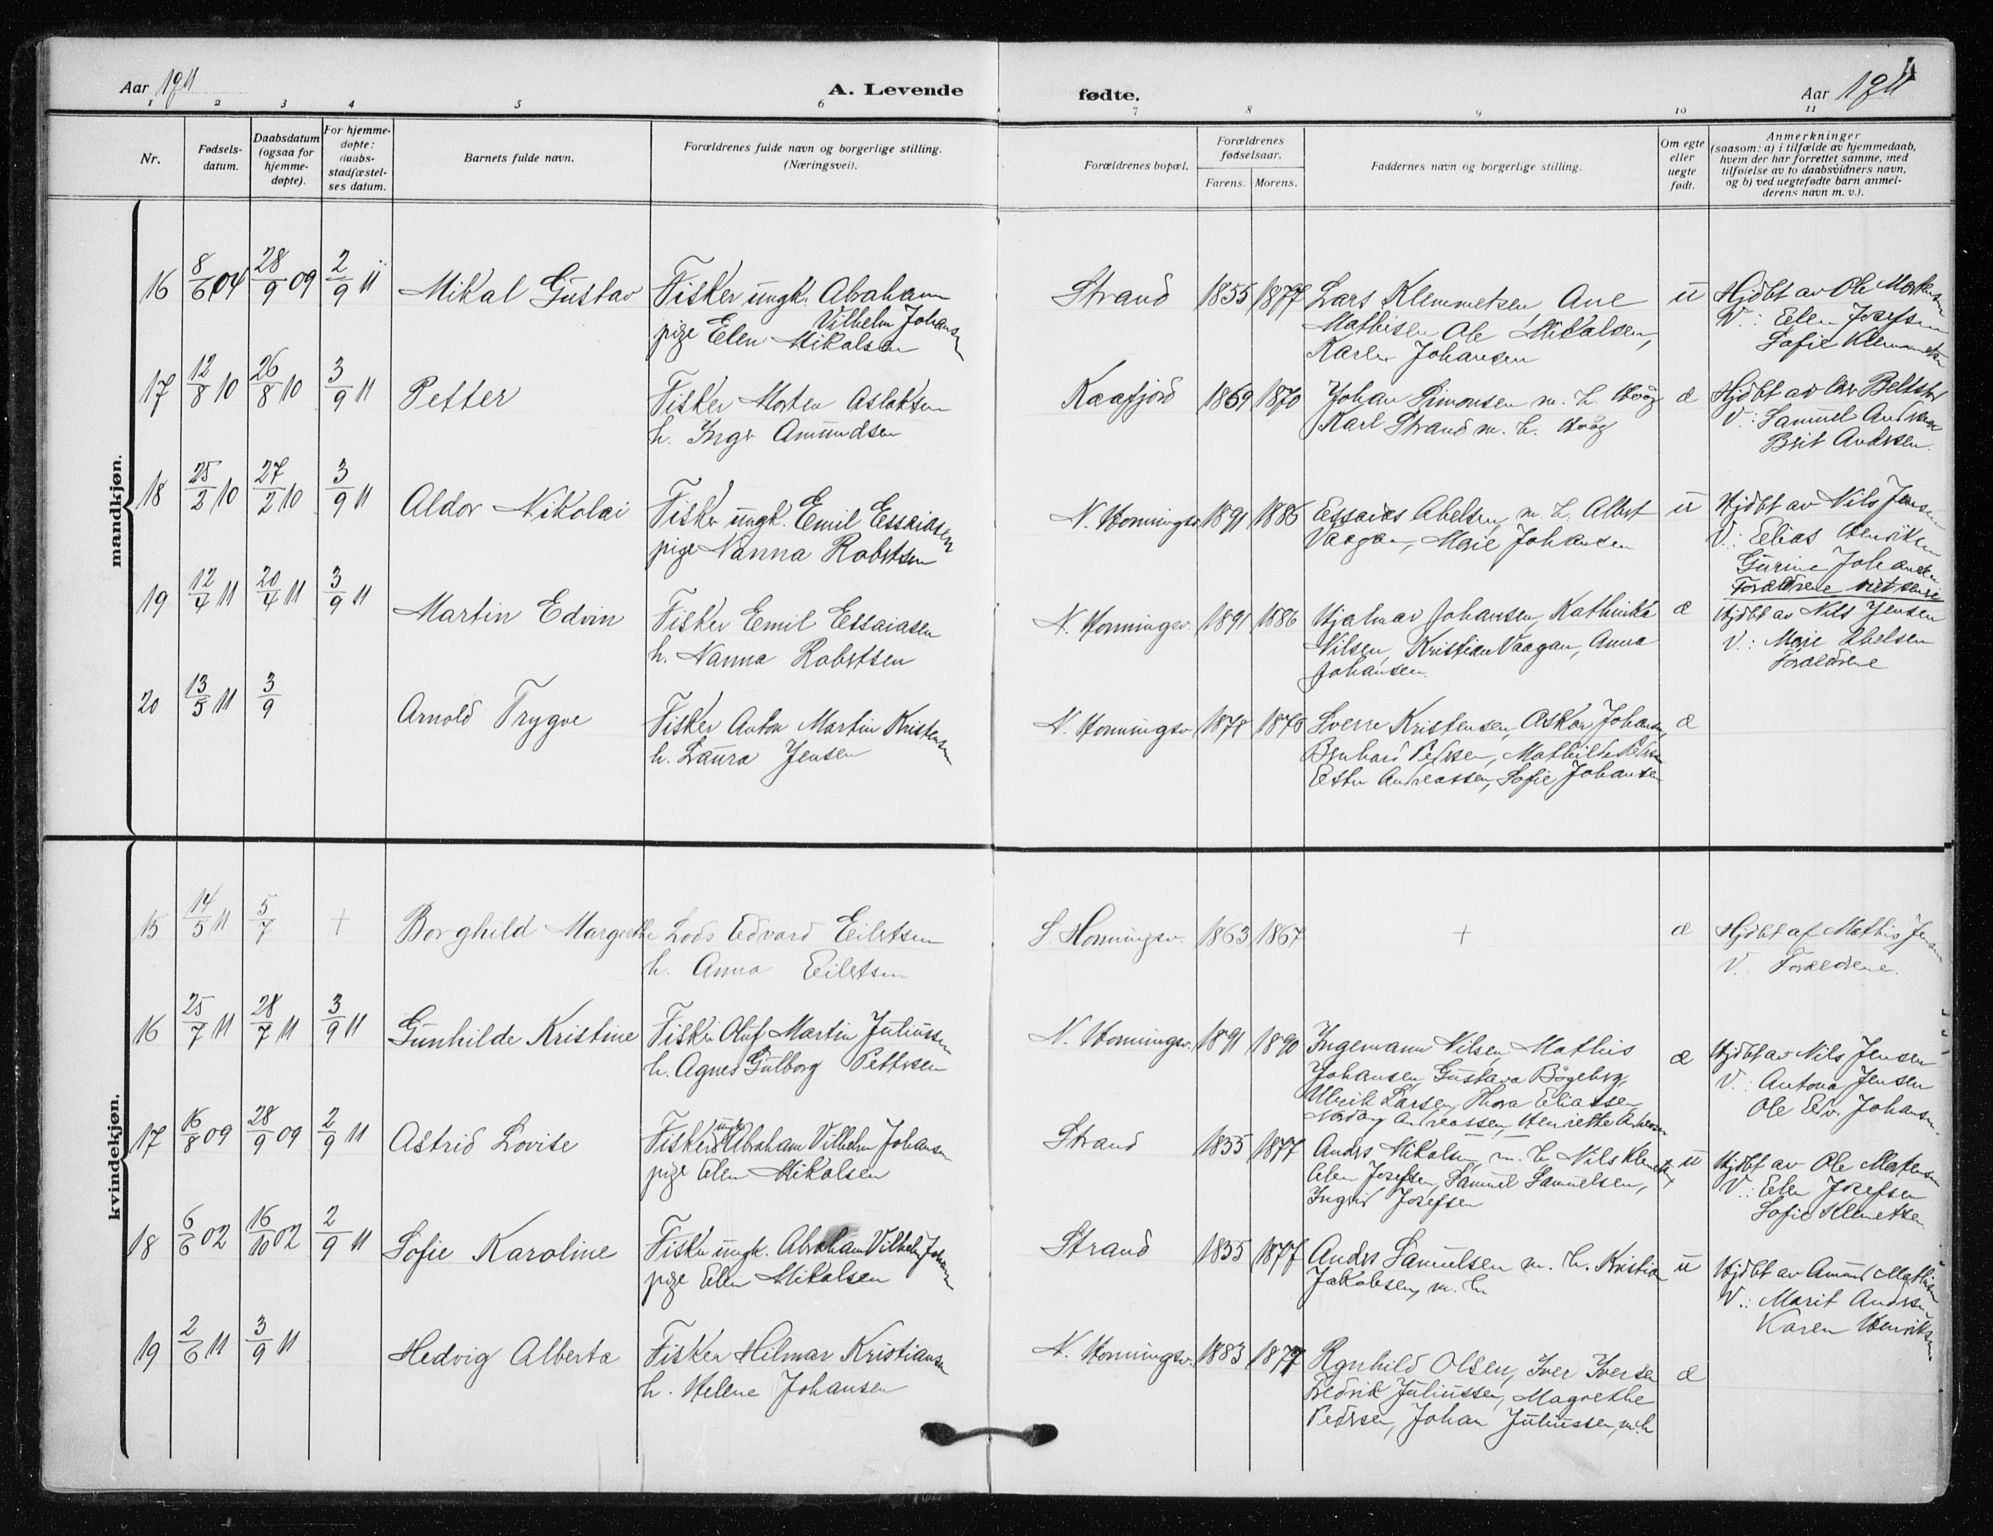 Aar 1911
A. Levende
fødte.
Aar 1911
4
1 2 3 4 5 6 7 8 9 10 11
Nr.
Fødsels-
datum.
Daabsdatum
(ogsaa for
hjemme-
døpte).
For hjemme-
døpte:
daabs-
stadfæstel-
ses datum.
Barnets fulde navn.
Forældrenes fulde navn og borgerlige stilling.
(Næringsvei).
Forældrenes bopæl.
Forældrenes
fødselsaar.
Farens. Morens.
Faddernes navn og borgerlige stilling.
Om egte
eller
uegte
født.
Anmerkninger
(saasom: a) i tilfælde av hjemmedaab,
hvem der har forrettet samme, med
tilføielse av to daabsvidners navn,
og b) ved uegtefødte barn anmel-
derens navn m. v.).
mandkjøn.
16 8/6 04 28/9 09 2/9 11 Mikal Gustav Fisker ungk. Abraham Strand 1855 1877 Lars Klemmetsen, Ane u Hjdbt av Ole Mortensen
Vilhelm Johansen
pige Elen Mikalsen Mathisen Ole Mikalsen, V.: Elen Josefsen
Karen Johansen Sofie Klemmetsen
17 12/8 10 26/8 10 3/9 11 Petter Fisker Morten Aslaksen Kaafjord 1869 1870 Johan Simonsen m. h. æ Hjdbt av
h. Inga Amundsen Karl Strand m. h. V.: Samuel Andersen
Brit Andersen.
18 25/2 10 27/2 10 3/9 11 Aldor Nikolai Fisker ungk. Emil Essaiasen N. Honningsv. 1891 1886 Essaias Abelsen, m. h. Albert u Hjdbt av Nils Jensen
pige Nanna Robertsen Vaagan, Marie Johansen V.: Elias Henriksen
Gurine Johansen
Forældrene viet senere
19 12/4 11 20/4 11 3/9 11 Martin Edvin Fisker Emil Essaiasen N. Honningsv. 1891 1886 Hjalmar Johansen, Kathinka æ Hjdbt av Nils Jensen
h. Nanna Robertsen Nilsen, Kristian Vaagan, Anna V.: Marie Abelsen
Johansen. Forældrene
20 13/5 11 3/9 Arnold Trygve Fisker Anton Martin Kristensen N. Honningsv. 1878 1876 Sverre Kristensen, Oskar Johansen, æ
h. Laura Jensen Bernhard Pedersen, Mathilde Pedersen
Ester Andreassen, Sofie Johansen
kvindekjøn.
15 14/5 11 5/7 + Borghild Margrethe Lods Edvard Eilertsen S Honningsv. 1863 1867 + æ Hjdbt af Mathis Jensen
h. Anna Eilertsen V. Forældrene.
16 25/7 11 28/7 11 3/9 11 Gunhilde Kristine Fisker Oluf Martin Juliussen N. Honningsv. 1891 1890 Ingemann Nilsen, Mathis æ Hjdbt av Nils Jensen
h. Agnes Gulborg Pettersen Johansen, Gustava Bøgeberg, V. Antona Jensen
Ulrik Larsen, Thora Eliassen, Ole Edv. Johansen.
Nordang Andreassen, Henriette Andreassen
17 16/8 09 28/9 09 2/9 11 Astrid Lovise Fisker ungk. Abraham Vilhelm Johansen Strand 1855 1877 Anders Mikalsen, m. h Nils Klemetsen, u Hjdbt av Ole Mortensen
pige Elen Mikalsen Elen Josefsen, Samuel Samuelsen, V.: Elen Josefsen
Ingrid Josefsen Sofie Klemetsen
18 6/6 02 16/10 02 2/9 11 Sofie Karoline Fisker ungk. Abraham Vilhelm Johansen Strand 1855 1877 Anders Samuelsen m. h. Kristian u Hjdbt av Amund Mathisen
pige Elen Mikalsen Jakobsen, m. h V.: Marit Andersen
Karen Henriksen
19 2/6 11 3/9 11 Hedvig Alberta Fisker Hilmar Kristiansen N. Honningsv. 1883 1877 Ragnhild Olsen, Iver Iversen æ
h. Helene Johansen Fredrik Juliussen, Magrethe
Pedersen, Johan Juliussen, m. h